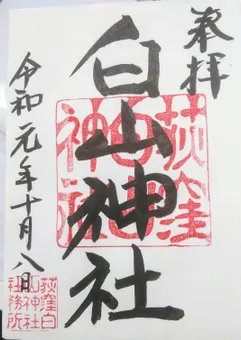 奉拝
白山神社
荻窪白山神社
令和元年十月八日
荻窪白
山神社
社務所